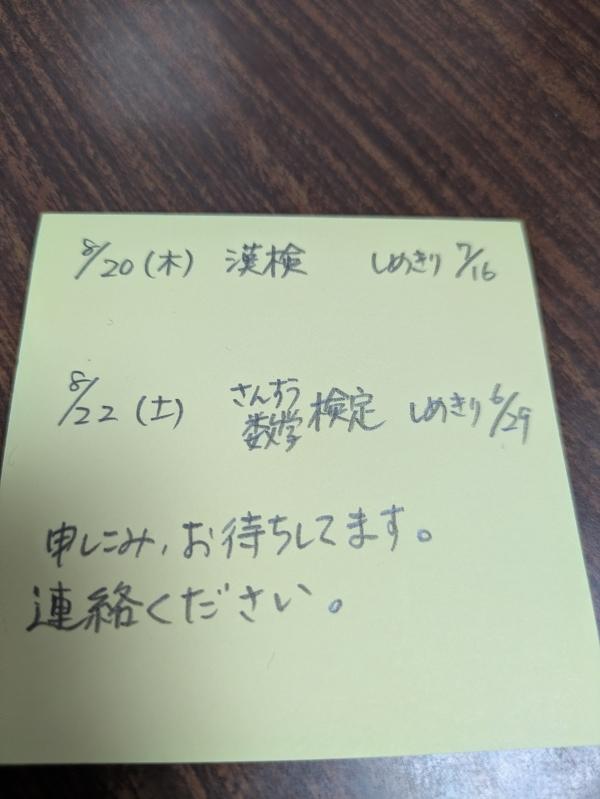 8/20(木) 漢検 しめきり 7/16
8/22(土) さんすう数学検定 しめきり 6/29
申しこみ、お待ちしてます。
連絡ください。